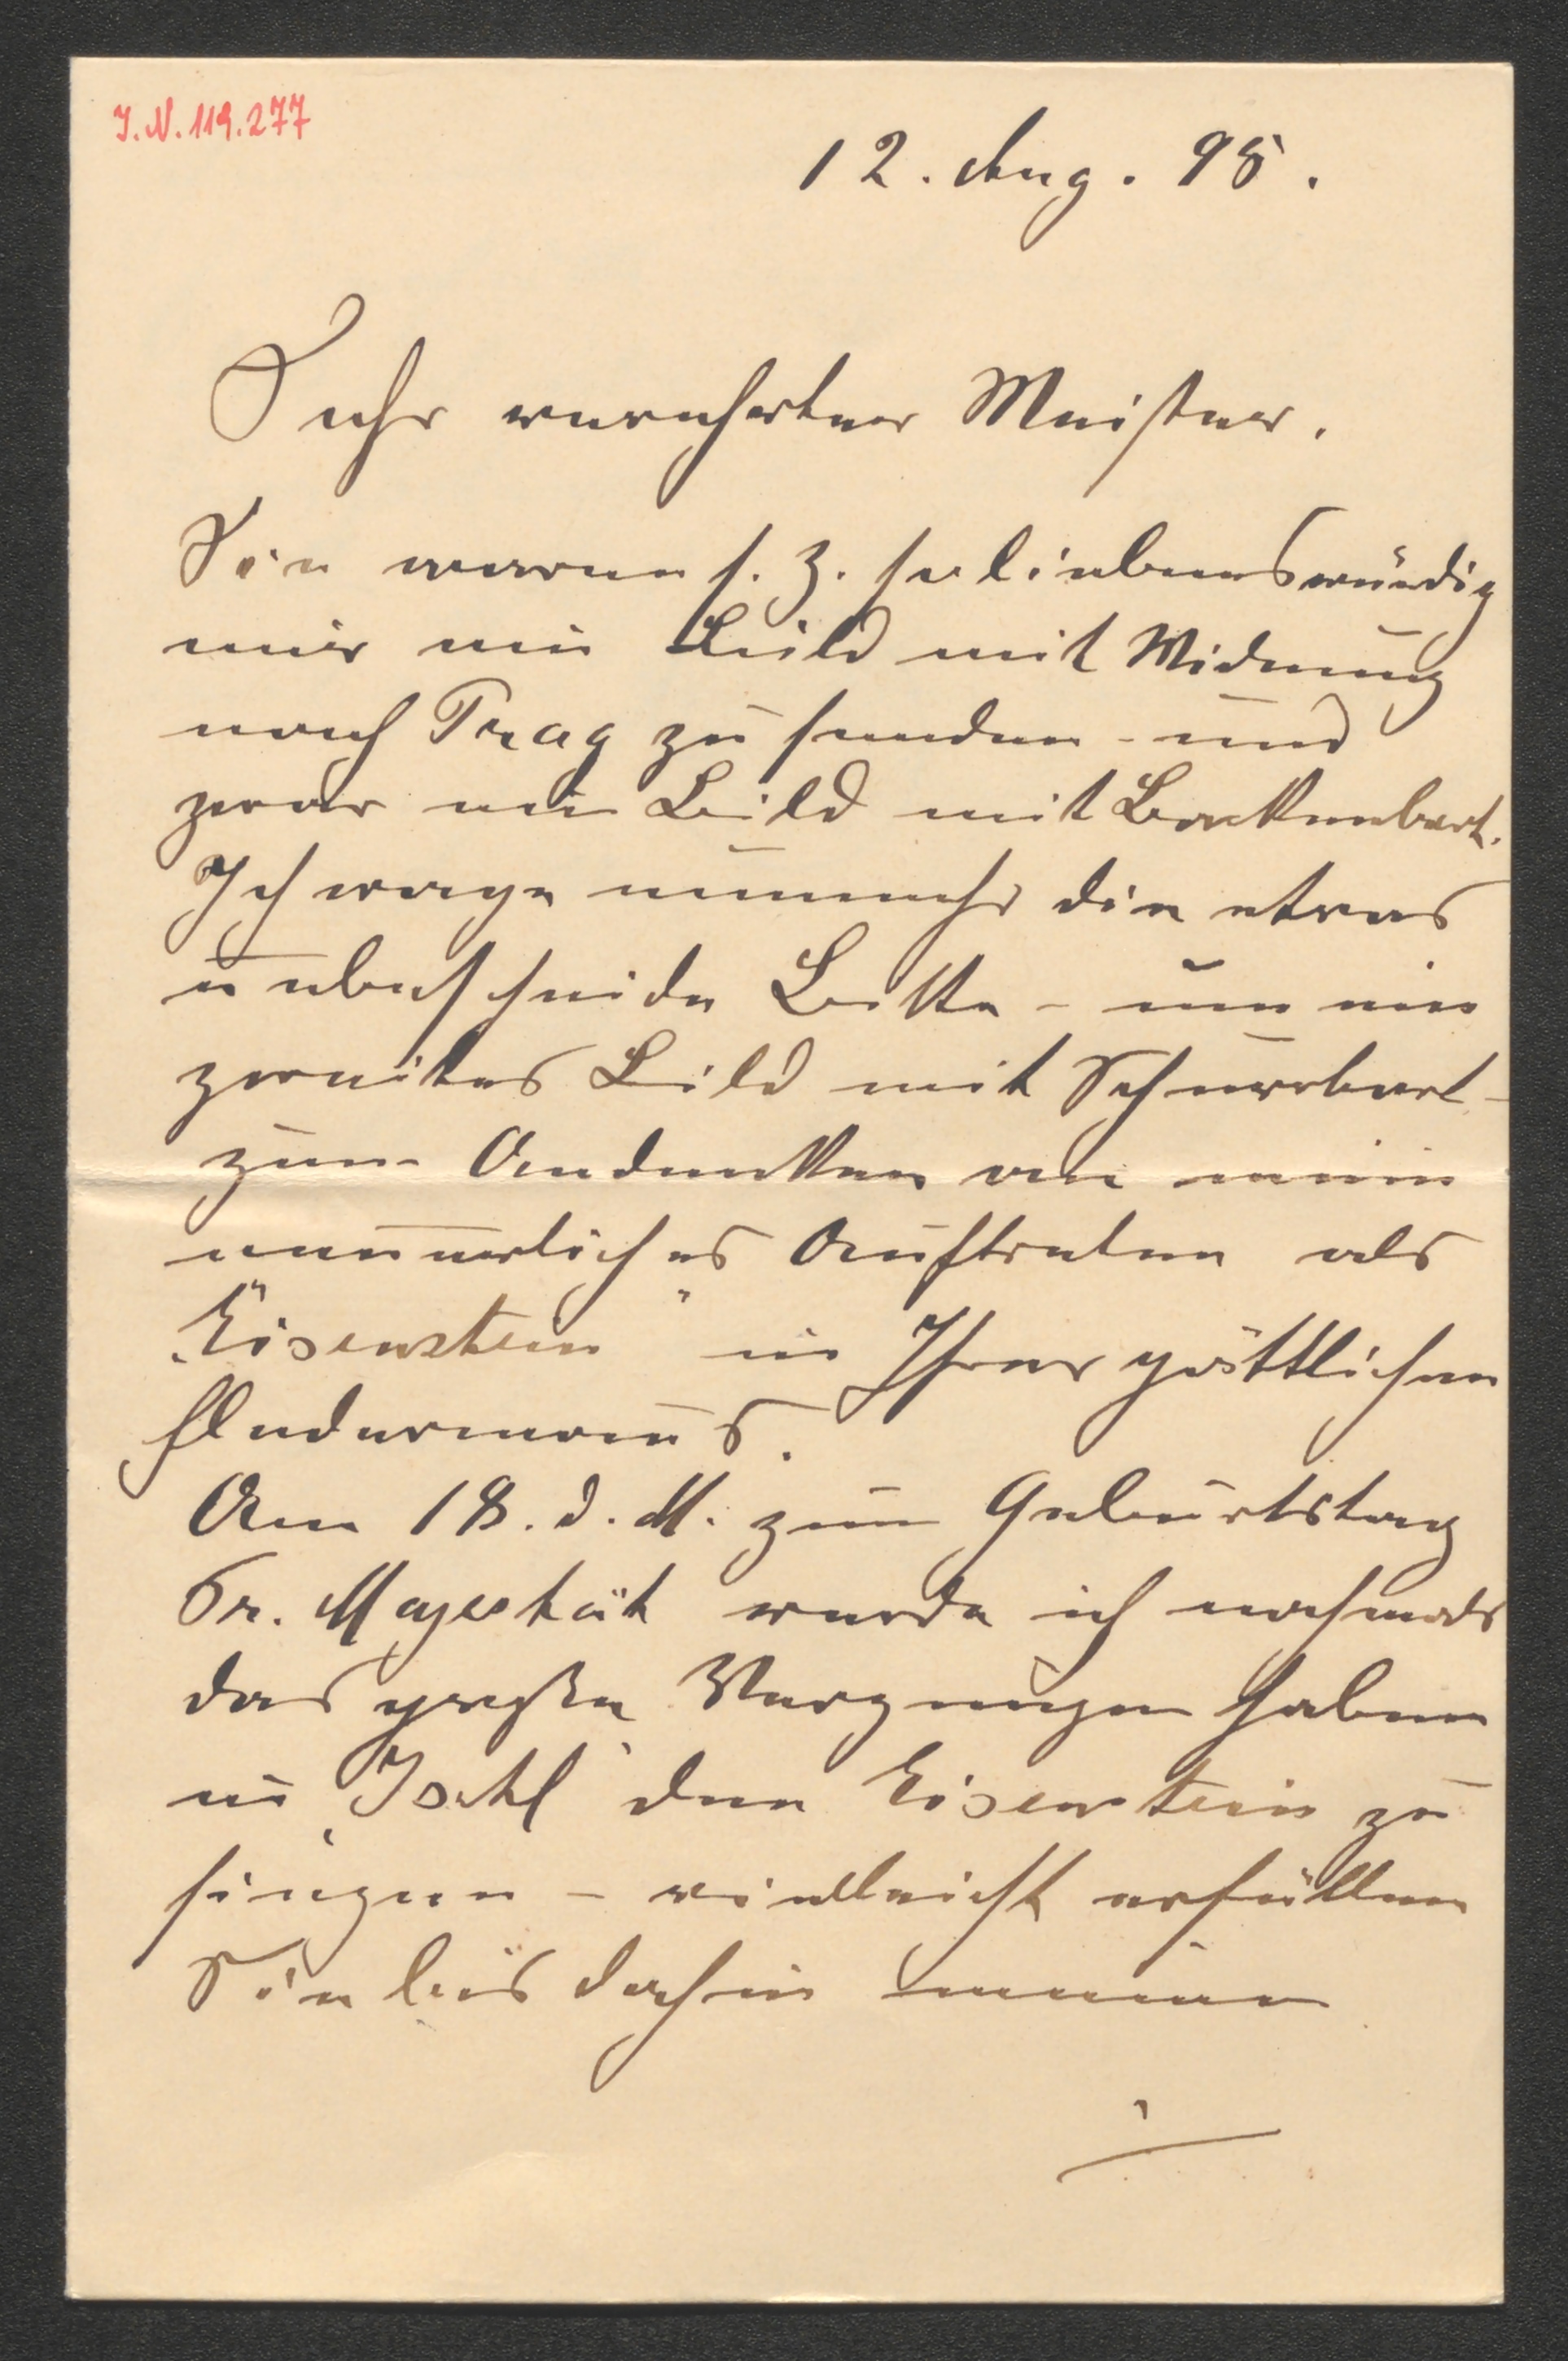 I.N. 119.277
12. Aug. 95.
Sehr verehrter Meister.
Sie waren s. z. so liebenswürdig
mir ein Bild mit Widmung
nach Prag zu senden - und
zwar ein Bild mit Backenbart.
Ich wage nunmehr die etwas
unbescheide Bitte - um ein
zweites Bild mit Schnurrbart -
zum Andenken an mein
neuerliches Auftreten als
„Eisenstein" in Ihrer göttlichen
Fledermaus.
Am 18. d. M. zum Geburtstag
Sr. Majestät werde ich nochmals
das große Vergnügen haben
in Ischl den Eisenstein zu
singen - vielleicht erfüllen
Sie bis dahin meine